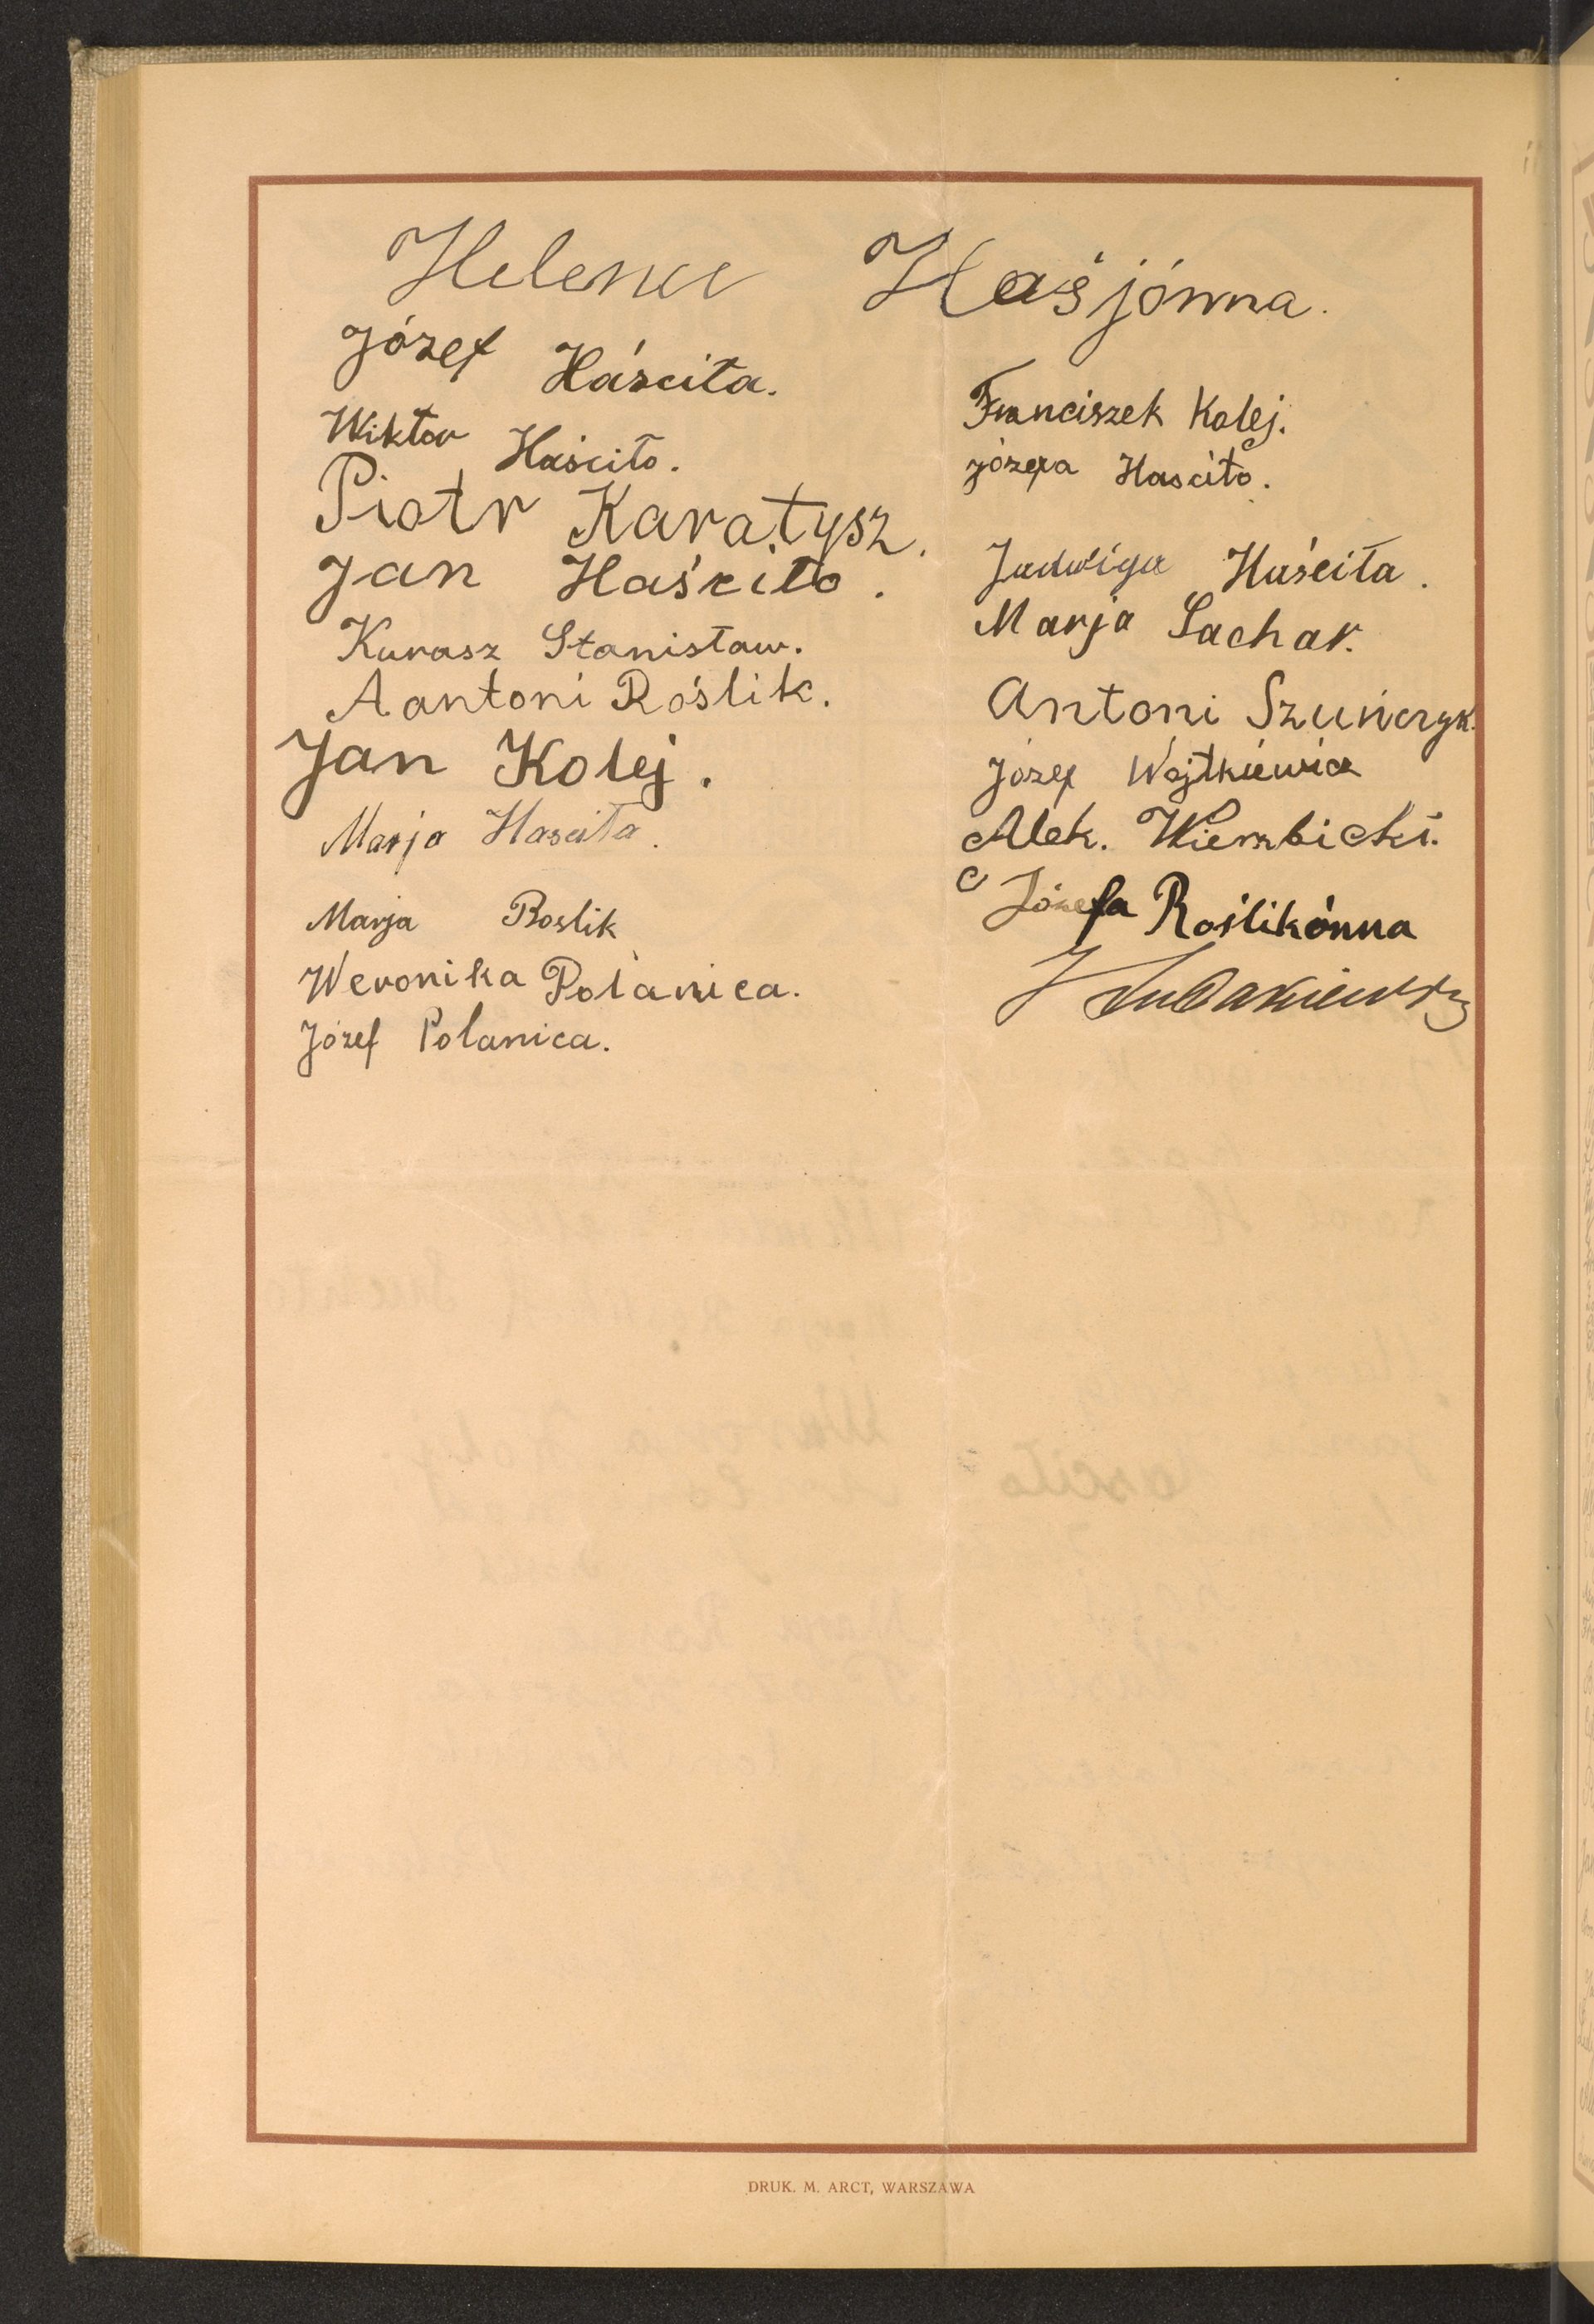 Helena Haśjówna.
Józef Háscita.
Wiktor Haścito.
Piotr Karatysz.
Jan Haścito.
Kurasz Stanisław.
Aantoni Roślik.
Jan Kolej.
Marja Hascita.
Marja Roslik
Weronika Polanica.
Józef Polanica.
Franciszek Kolej.
Józefa Hascito.
Jadwiga Haścita.
Marja Sachar.
Antoni Szuńczyk.
Józef Wojtkiewicz
Alek. Wierzbicki.
Józefa Roślikówna
J
DRUK. M. ARCT, WARSZAWA